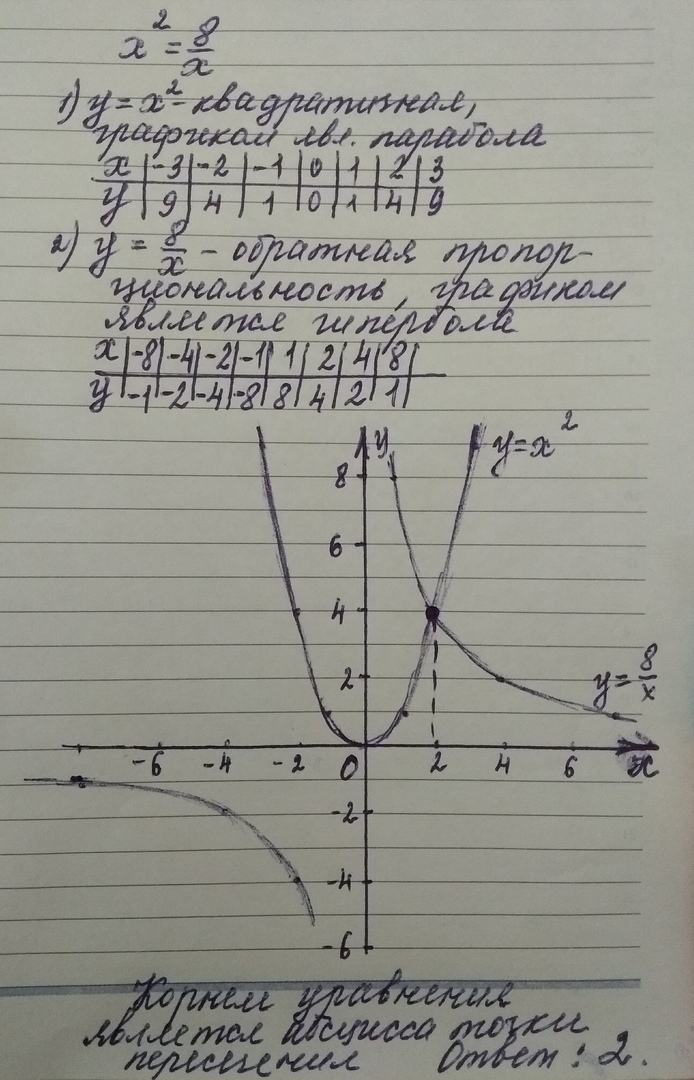 x² = 8/x
1) y = x² - квадратичная,
графиком явл. парабола
x | -3 | -2 | -1 | 0 | 1 | 2 | 3
y | 9 | 4 | 1 | 0 | 1 | 4 | 9
2) y = 8/x - обратная пропор-
циональность, графиком
является гипербола
x | -8 | -4 | -2 | -1 | 1 | 2 | 4 | 8 |
y | -1 | -2 | -4 | -8 | 8 | 4 | 2 | 1 |
y y = x²
8
6
4
2 y = 8/x
-6 -4 -2 0 2 4 6 x
-2
-4
-6
Корнем уравнения
является абсцисса точки
пересечения Ответ: 2.